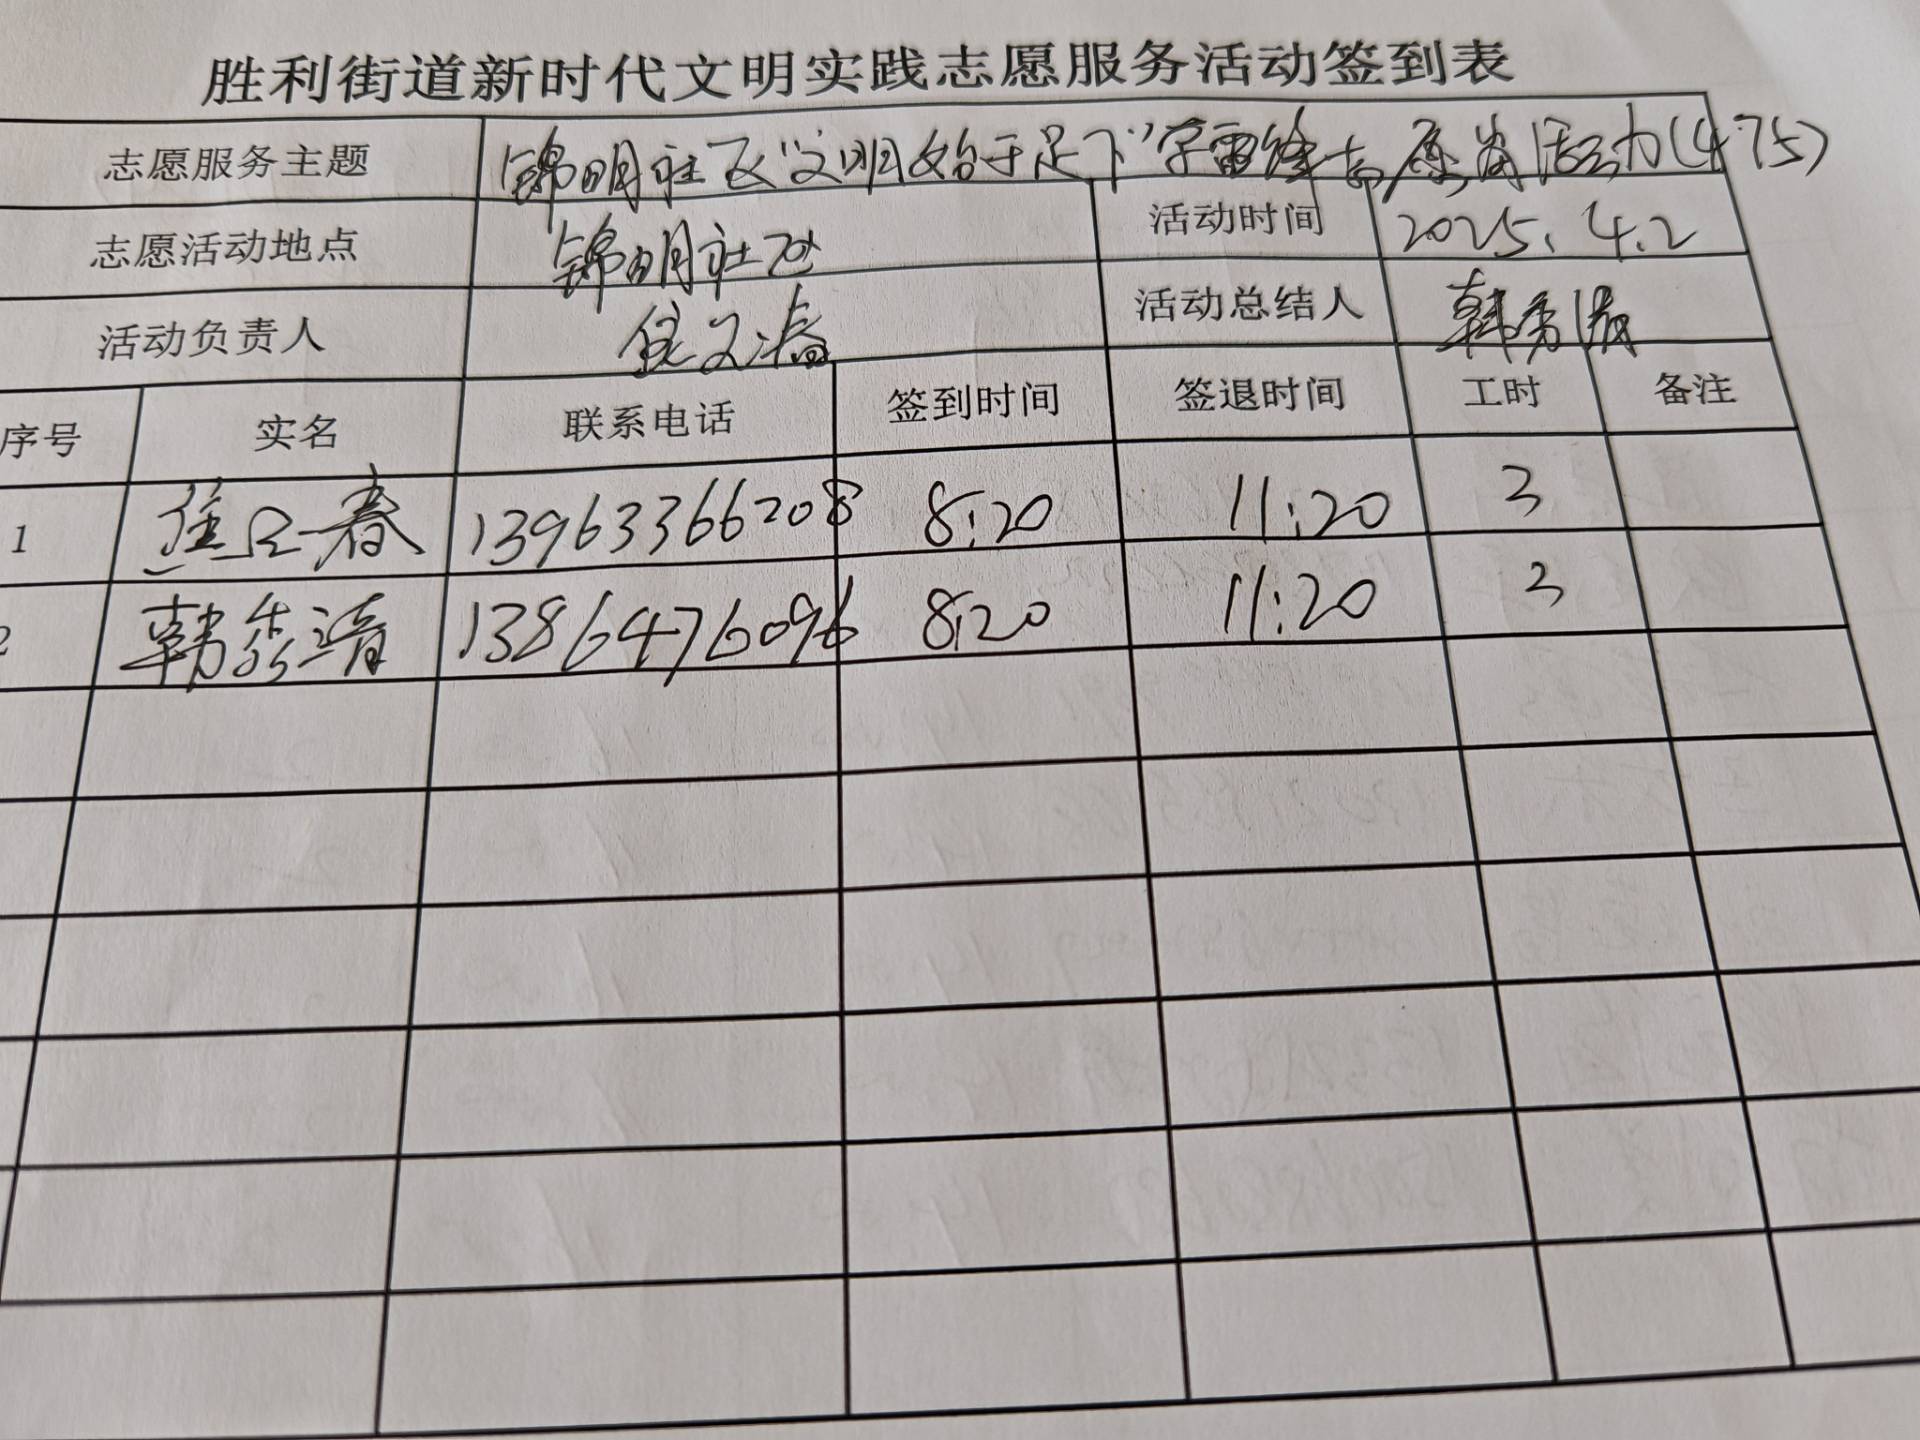 胜利街道新时代文明实践志愿服务活动签到表
志愿服务主题 锦明社区"文明始于足下"学雷锋志愿者活动(475)
志愿活动地点 锦明社区 活动时间 2025.4.2
活动负责人 活动总结人 韩秀清
序号 实名 联系电话 签到时间 签退时间 工时 备注
1 13963366208 8:20 11:20 3
2 韩秀清 13864476096 8:20 11:20 3